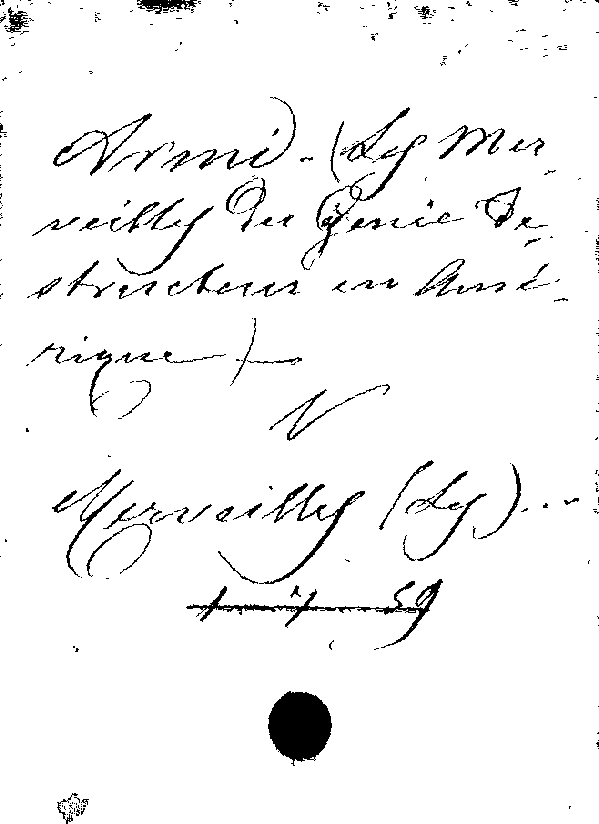 Armi - (Les Mer-
veilles du Génie de-
structeur en Amé-
rique) -
V
Merveilles (Les)..-